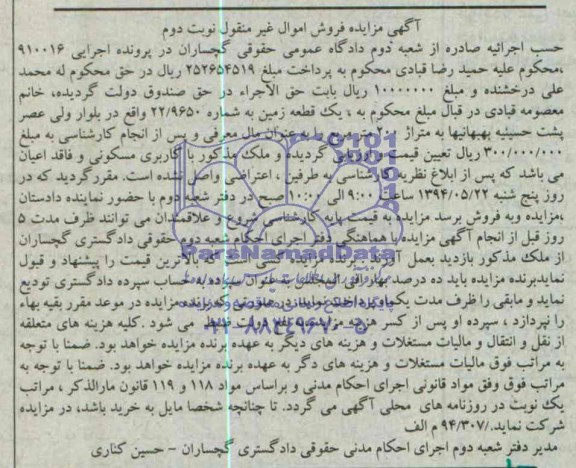 آگهی مزایده فروش اموال غیر منقول نوبت دوم
حسب اجرائیه صادره از شعبه دوم دادگاه عمومی حقوقی گچساران در پرونده اجرایی ۹۱۰۰۱۶
،محکوم علیه حمید رضا قبادی محکوم به پرداخت مبلغ ۲۵۲۶۵۴۵۱۹ ریال در حق محکوم له محمد
علی درخشنده و مبلغ ۱۰۰۰۰۰۰۰ ریال بابت حق الاجراء در حق صندوق دولت گردیده، خانم
معصومه قبادی در قبال مبلغ محکوم به ؛ یک قطعه زمین به شماره ۲۲/۹۶۵۰ واقع در بلوار ولی عصر
پشت حسینیه بهبهانیها به متراژ ۲۰۰ متر مربع را به عنوان مال معرفی و پس از انجام کارشناسی به مبلغ
۳۰۰/۰۰۰/۰۰۰ ریال تعیین قیمت و ارزیابی گردیده و ملک مذکور با کاربری مسکونی و فاقد اعیان
می باشد که پس از ابلاغ نظریه کارشناسی به طرفین ، اعتراضی واصل نشده است. مقرر گردید که در
روز پنج شنبه ۱۳۹۴/۰۵/۲۲ ساعت ۹:۰۰ الی ۱۰:۰۰ صبح در دفتر شعبه دوم با حضور نماینده دادستان
،مزایده وبه فروش برسد مزایده به قیمت پایه کارشناسی شروع و علاقمندان می توانند ظرف مدت ۵
روز قبل از انجام آگهی مزایده با هماهنگی دفتر اجرای احکام شعبه دوم حقوقی دادگستری گچساران
از ملک مذکور بازدید بعمل آورند. برنده مزایده کسی است که بالاترین قیمت را پیشنهاد و قبول
نمایدبرنده مزایده باید ده درصد بها را فی المجلس به عنوان سپرده/به حساب سپرده دادگستری تودیع
نماید و مابقی را ظرف مدت یکماه پرداخت نماید. در صورتی که برنده مزایده در موعد مقرر بقیه بهاء
را نپردازد ، سپرده او پس از کسر هزینه مزایده به نفع دولت ضبط می شود .کلیه هزینه های متعلقه
از نقل و انتقال و مالیات مستغلات و هزینه های دیگر به عهده برنده مزایده خواهد بود. ضمنا با توجه
به مراتب فوق مالیات مستغلات و هزینه های دگر به عهده برنده مزایده خواهد بود. ضمنا با توجه به
مراتب فوق وفق مواد قانونی اجرای احکام مدنی و براساس مواد ۱۱۸ و ۱۱۹ قانون مارالذکر ، مراتب
یک نوبت در روزنامه های محلی آگهی می گردد. تا چنانچه شخصا مایل به خرید باشد، در مزایده
شرکت نماید./۹۴/۳۰۷ م الف
مدیر دفتر شعبه دوم اجرای احکام مدنی حقوقی دادگستری گچساران – حسین کناری
ParsNamadData
۰۲۱-۸۸۳۴۹۶۷۰-۵